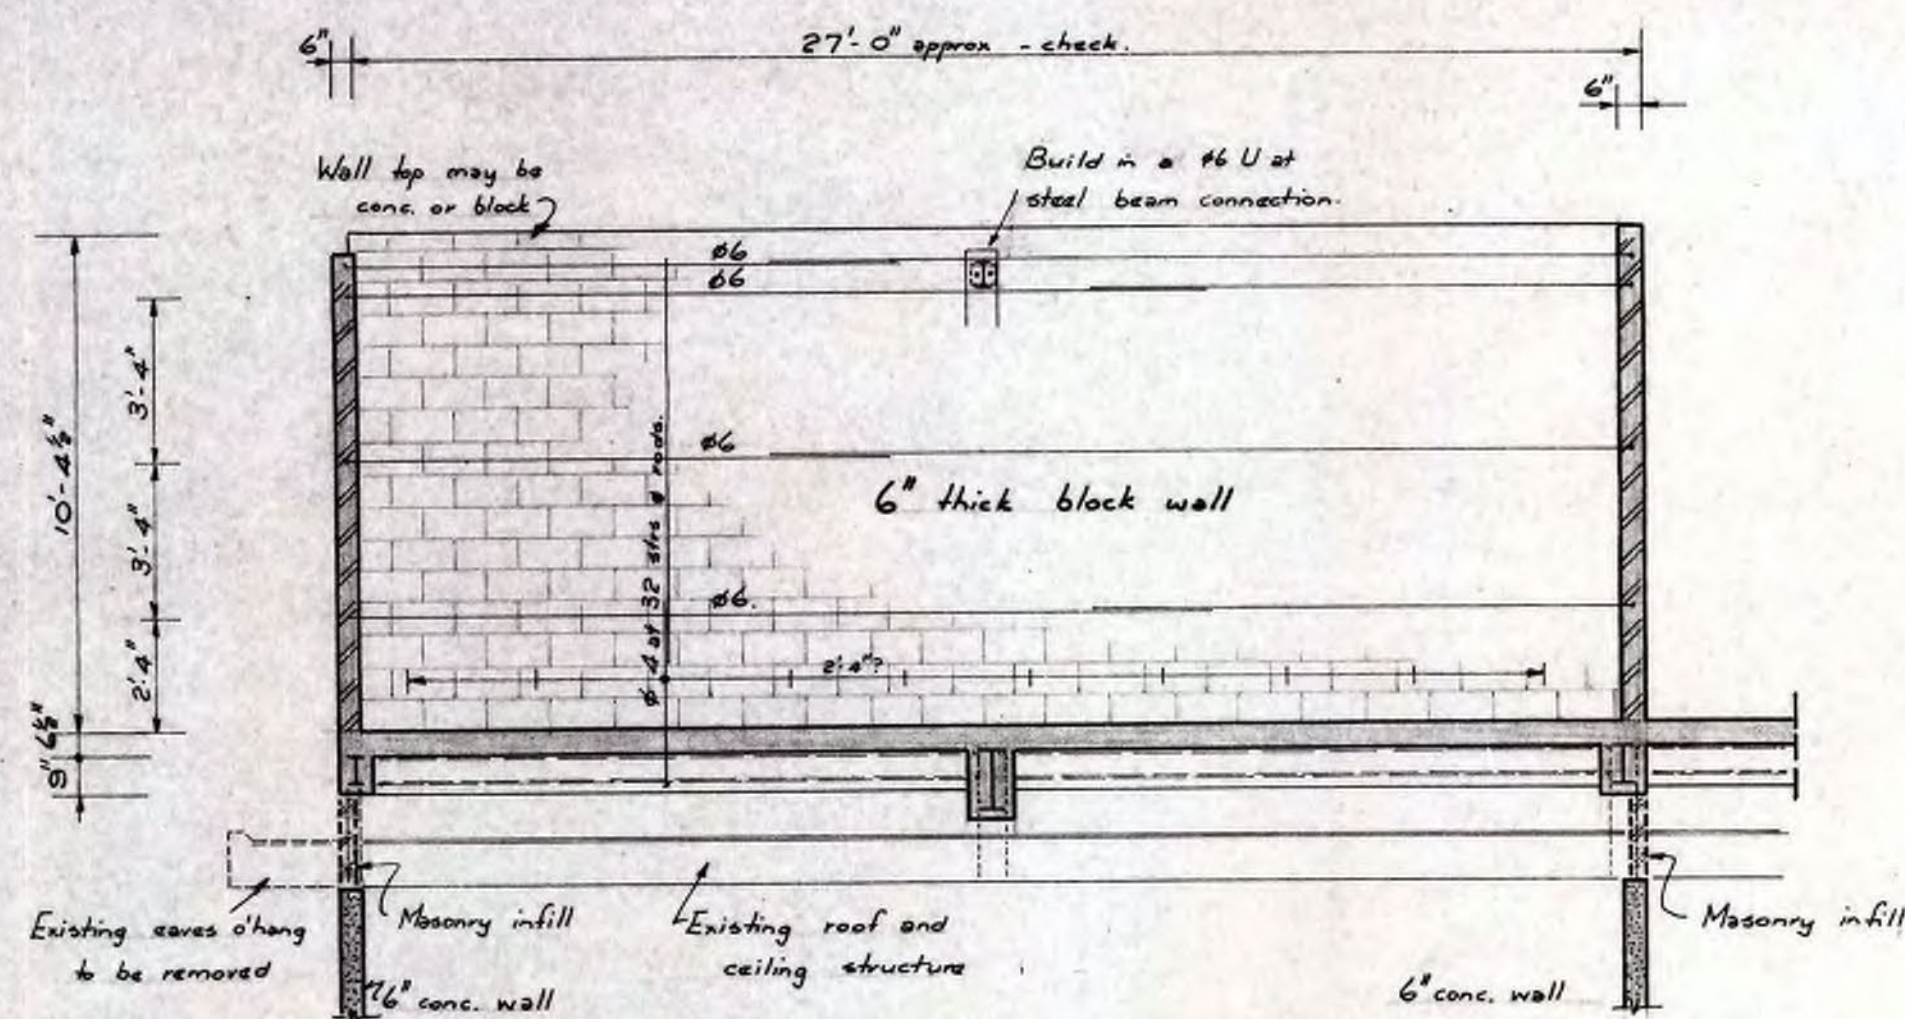 6"
27'-0" approx - check.
6"
Wall top may be
conc. or block
Build in a ø6 U at
steel beam connection.
ø6
ø6
10'-4½"
3'-4"
ø6
6" thick block wall
3'-4"
ø 4 at 32 ø rods.
ø6.
2'-4"
2'-4"?
6½"
9"
Existing eaves o'hang
to be removed
Masonry infill
Existing roof and
ceiling structure
Masonry infill
6" conc. wall
6" conc. wall